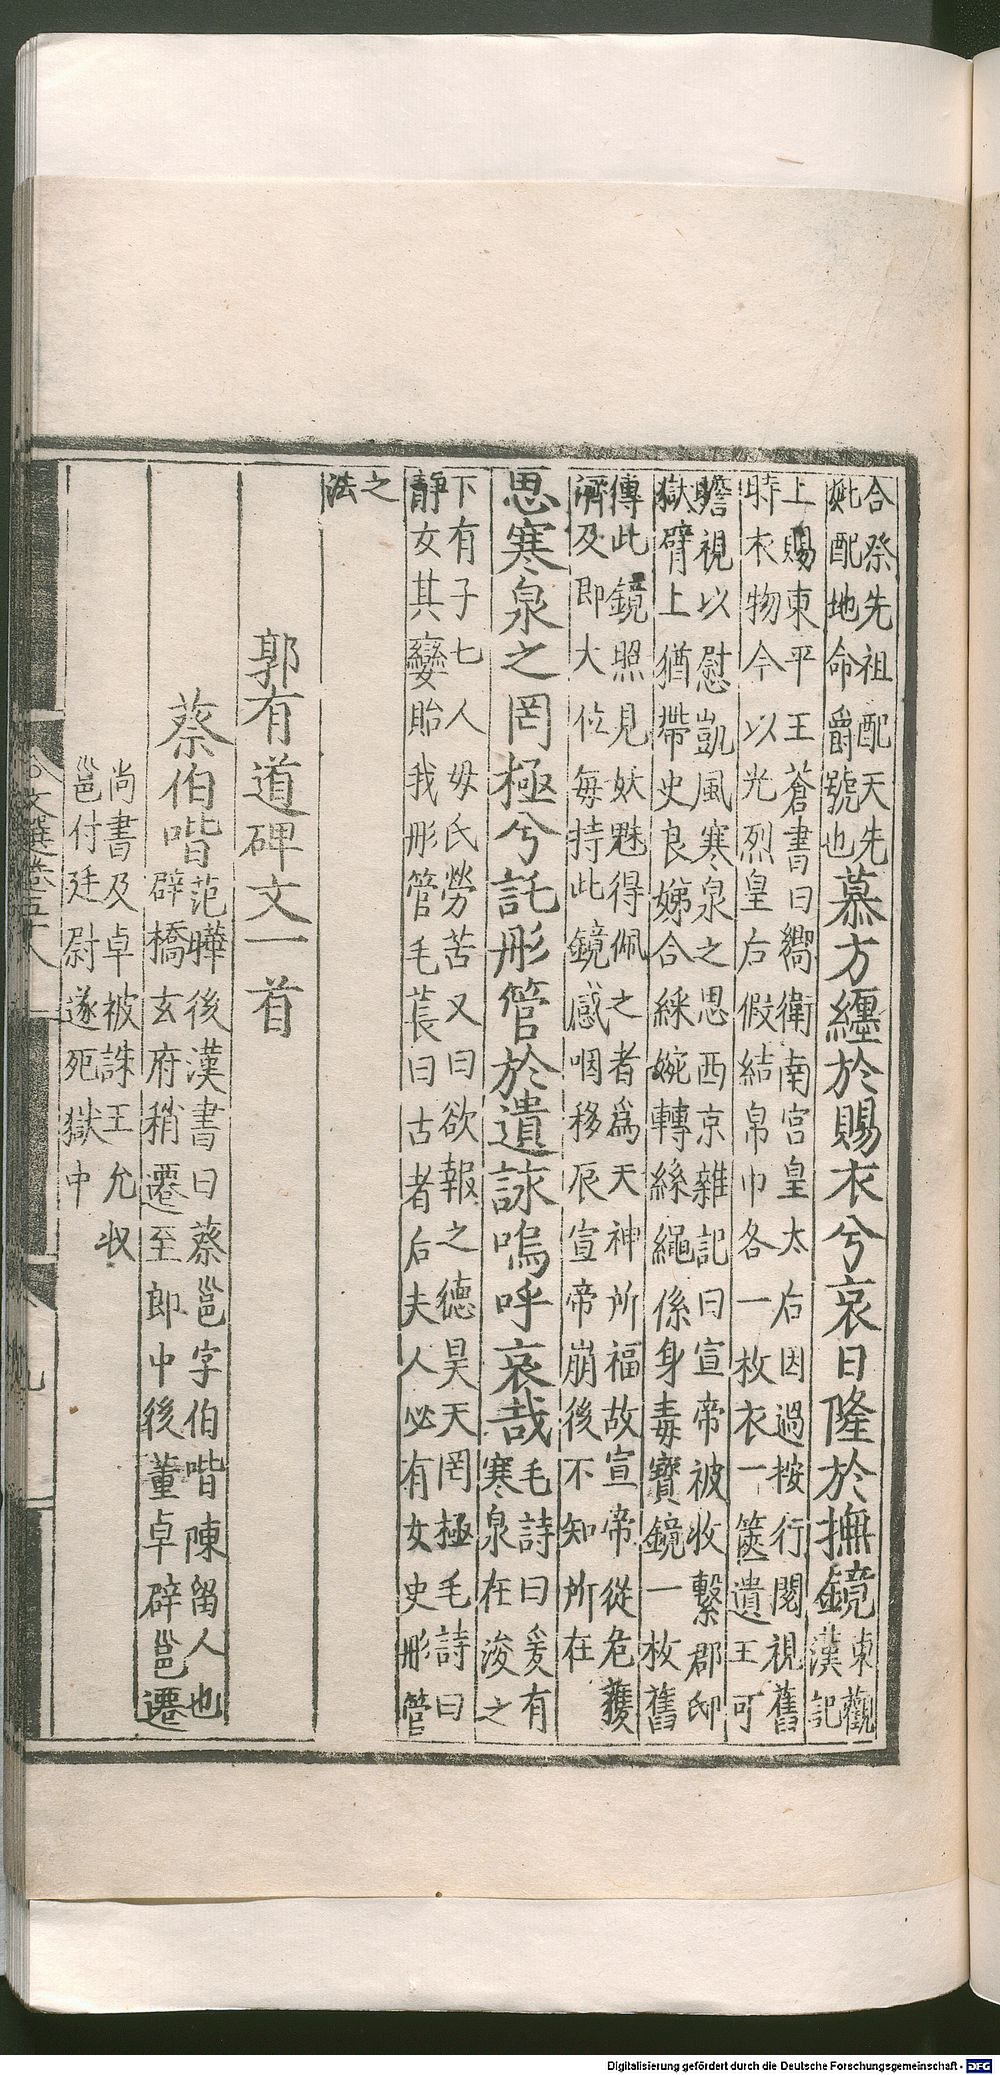 合祭先祖配天先
妣配地命爵號也
慕方纏於賜衣兮哀日隆於撫鏡
東觀
漢記
上賜東平王蒼書曰嚮衛南宮皇太后因過按行閱視舊
時衣物今以光烈皇后假結帛巾各一枚衣一篋遺王可
瞻視以慰凱風寒泉之思西京雜記曰宣帝被收繫郡邸
獄臂上猶帶史良娣合綵婉轉絲繩係身毒寶鏡一枚舊
傳此鏡照見妖魅得佩之者爲天神所福故宣帝從危獲
濟及即大位每持此鏡感咽移辰宣帝崩後不知所在
思寒泉之罔極兮託彤管於遺詠嗚呼哀哉
毛詩曰爰有
寒泉在浚之
下有子七人毋氏勞苦又曰欲報之德昊天罔極毛詩曰
靜女其孌貽我彤管毛萇曰古者后夫人必有女史彤管
之
法
郭有道碑文一首
蔡伯喈
范曄後漢書曰蔡邕字伯喈陳留人也
辟橋玄府稍遷至郎中後董卓辟邕遷
尚書及卓被誅王允收
邕付廷尉遂死獄中
文選卷五十八
九
Digitalisierung gefördert durch die Deutsche Forschungsgemeinschaft - DFG